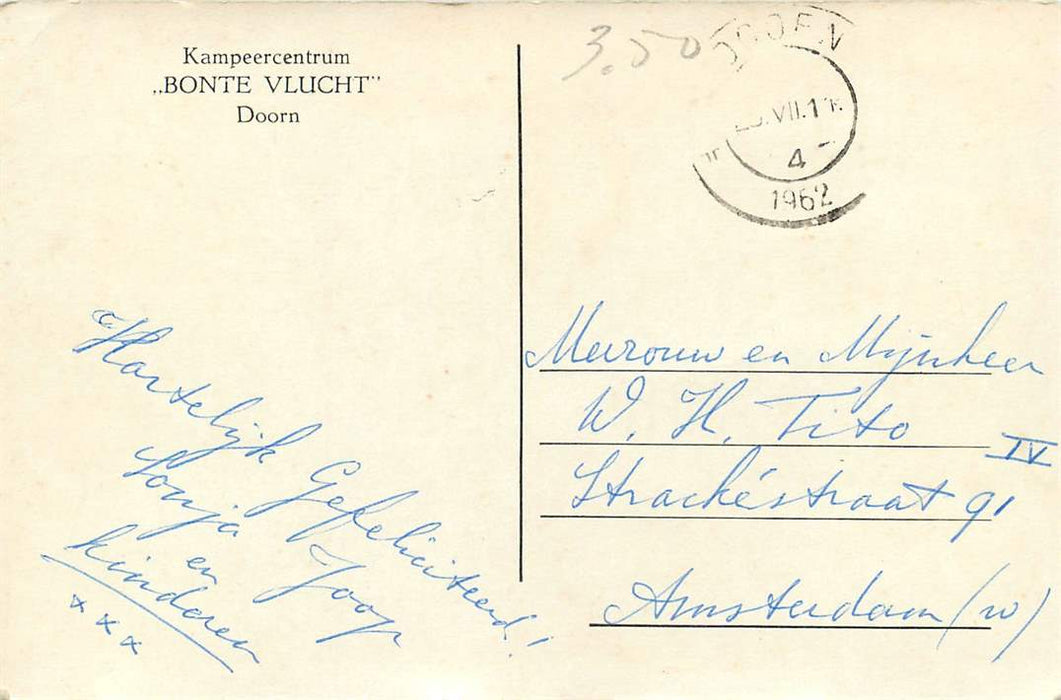 Kampeercentrum
„BONTE VLUCHT”
Doorn
3.50
DOORN
.VII.1
4
1962
Hartelijk Gefeliciteerd!
Sonja en Joop
kinderen
x x x
Mevrouw en Mijnheer
W. H. Tito
Strackéstraat 91 IV
Amsterdam (w)